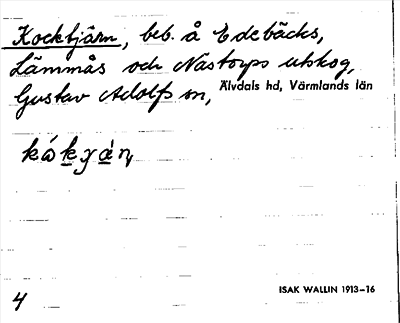 Kocktjärn, beb. å Edebäcks,
Lämmås och Nastorps utskog,
Gustav Adolfs sn, Älvdals hd, Värmlands län
ISAK WALLIN 1913–16
4